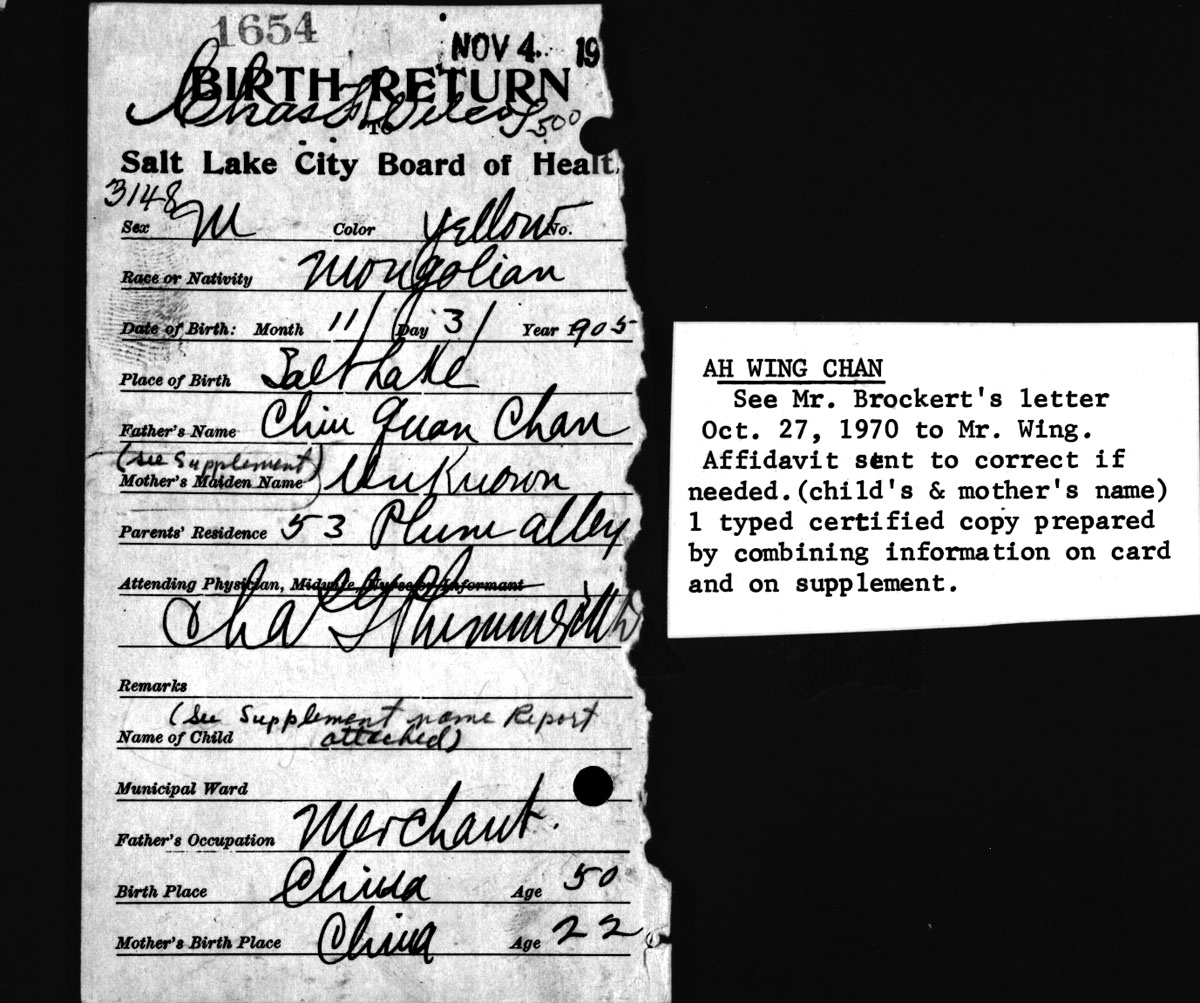 1654
NOV 4. 19
BIRTH RETURN
Chas F Wilcox
TO
500
Salt Lake City Board of Healt
3148
Sex M Color yellow No.
Race or Nativity Mongolian
Date of Birth: Month 11/ Day 3/ Year 1905
Place of Birth Salt Lake
Father's Name Chin Quan Chan
(see Supplement)
Mother's Maiden Name Unknown
Parents' Residence 53 Plum alley
Attending Physician, Midwife, Nurse or Informant
Cha
Remarks
(See Supplement name Report
Name of Child attached)
Municipal Ward
Father's Occupation Merchant.
Birth Place China Age 50
Mother's Birth Place China Age 22
AH WING CHAN
See Mr. Brockert's letter
Oct. 27, 1970 to Mr. Wing.
Affidavit sent to correct if
needed.(child's & mother's name)
1 typed certified copy prepared
by combining information on card
and on supplement.